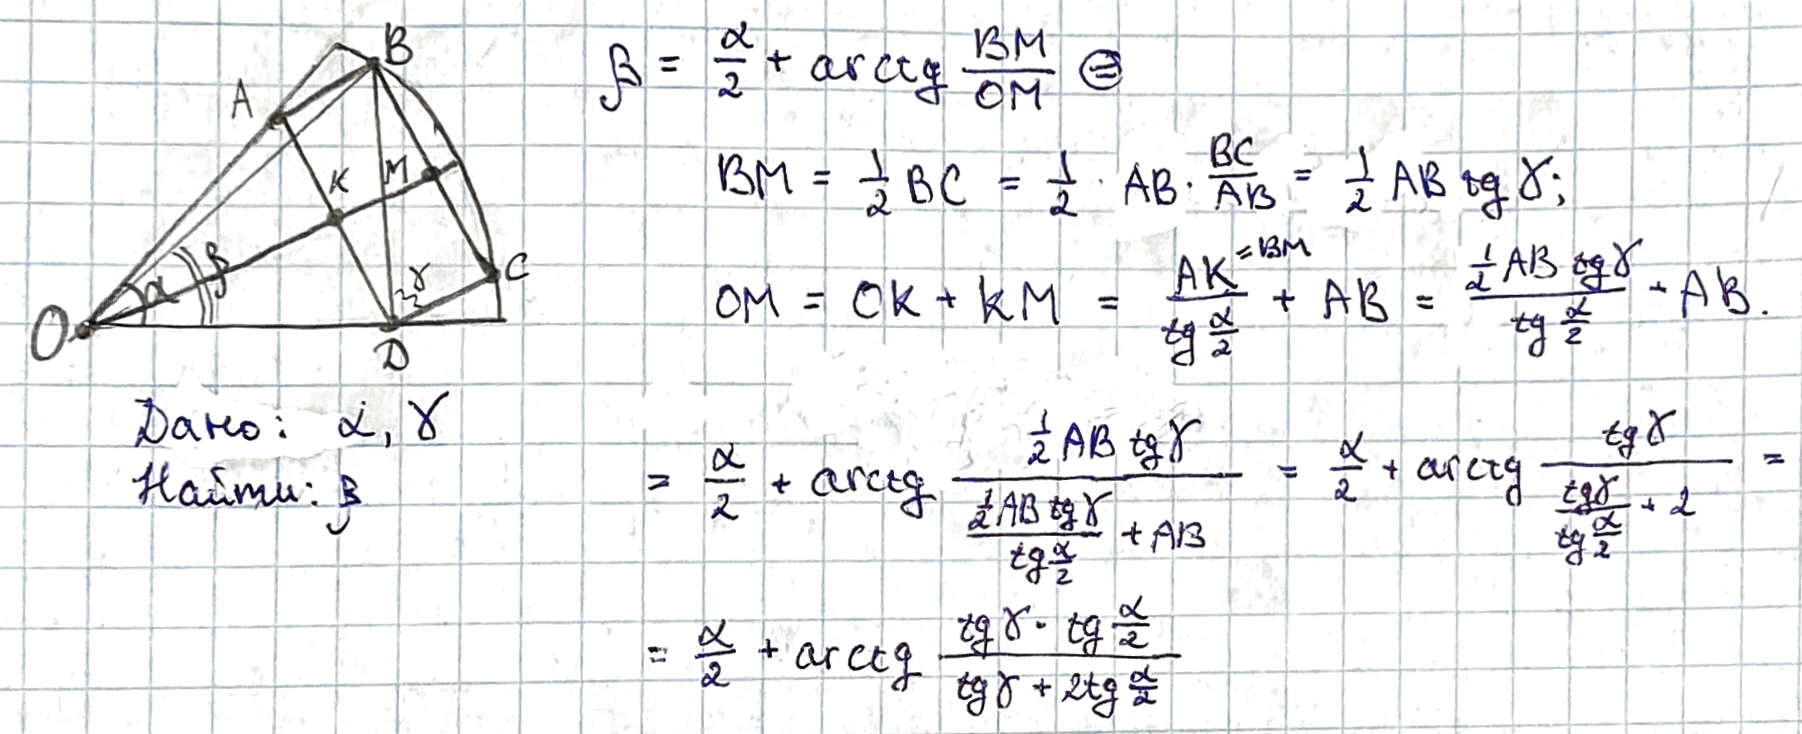 A B K M α β γ C O D
β = α/2 + arctg BM/OM ⊜
BM = 1/2 BC = 1/2 · AB · BC/AB = 1/2 AB tg γ;
OM = OK + KM = AK =BM / tg α/2 + AB = 1/2 AB tg γ / tg α/2 + AB.
Дано: α, γ
Найти: β
= α/2 + arctg (1/2 AB tg γ) / (1/2 AB tg γ / tg α/2 + AB) = α/2 + arctg tg γ / (tg γ / tg α/2 + 2) =
= α/2 + arctg (tg γ · tg α/2) / (tg γ + 2 tg α/2)